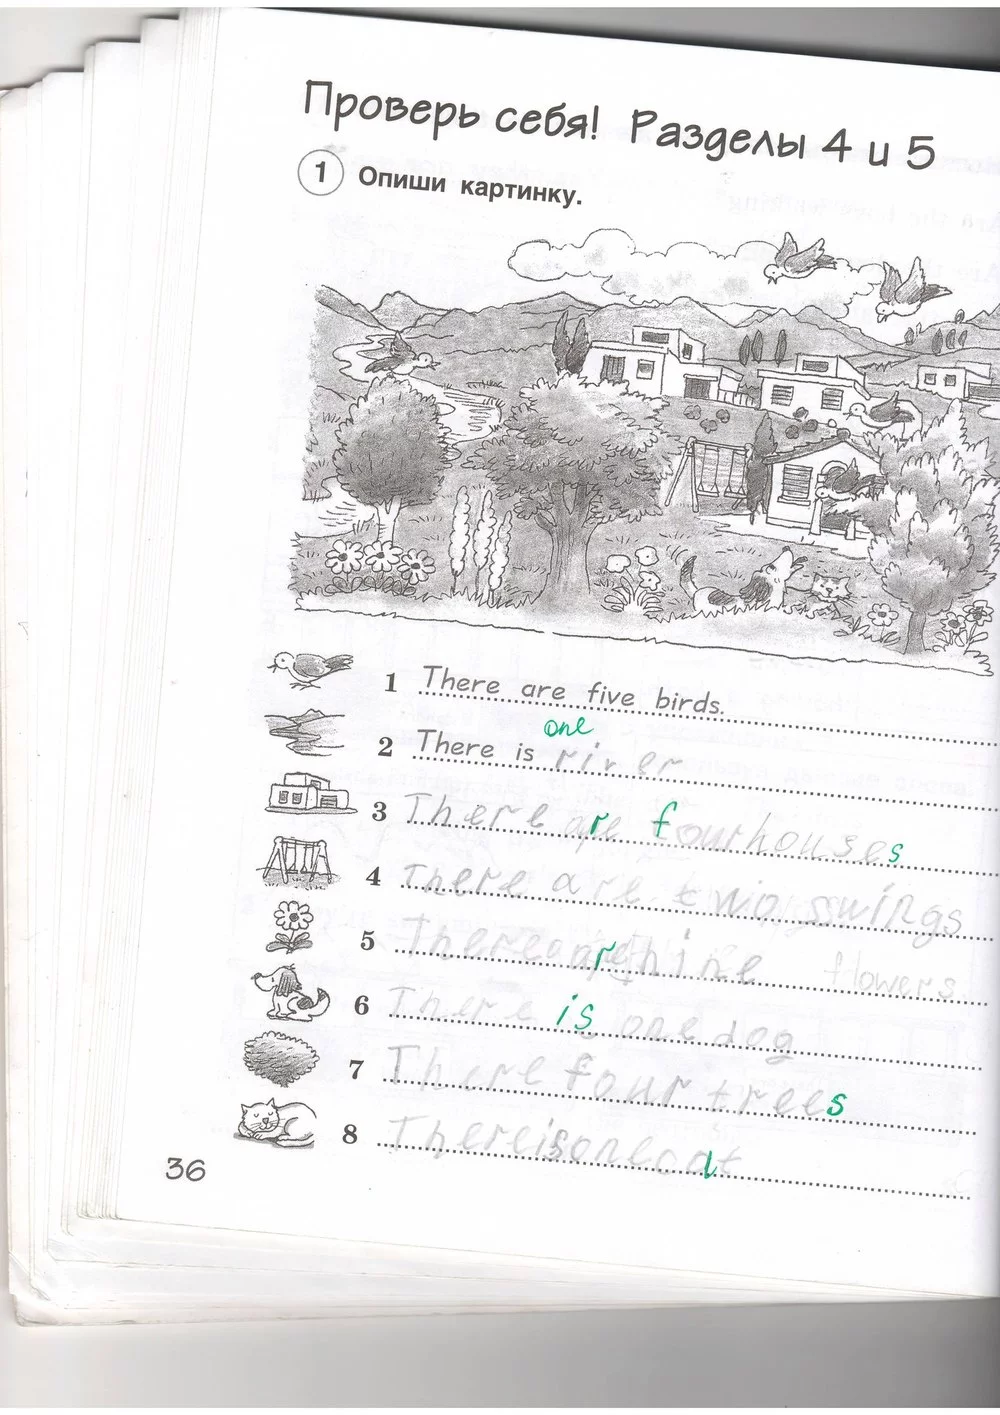 Проверь себя! Разделы 4 и 5
1 Опиши картинку.
1 There are five birds.
one
2 There is river
3 There are four houses
4 There are two swings
5 There are nine flowers
6 There is one dog
7 There four trees
8 There is one cat
36